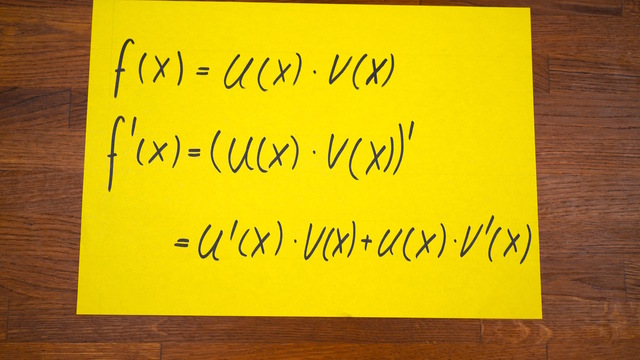 f(x) = u(x) · v(x)
f'(x) = (u(x) · v(x))'
= u'(x) · v(x) + u(x) · v'(x)